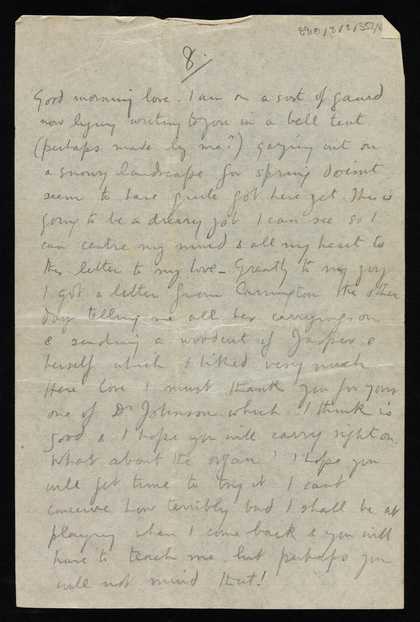 8.
Good morning love. I am on a sort of gaurd
now lying writing to you in a bell tent
(perhaps made by me?) gazing out on
a snowy landscape for spring doesnt
seem to have quite got here yet. This is
going to be a dreary job I can see so I
can centre my mind & all my heart to
this letter to my love – Greatly to my joy
I got a letter from Carrington the other
day telling me all her carryings on
& sending a woodcut of Jasper &
herself which I liked very much
Here love I must thank you for your
one of Dr Johnson which I think is
good & I hope you will carry right on.
What about the organ! I hope you
will get time to try it I cant
conceive how terribly bad I shall be at
playing when I come back & you will
have to teach me but perhaps you
will not mind that!